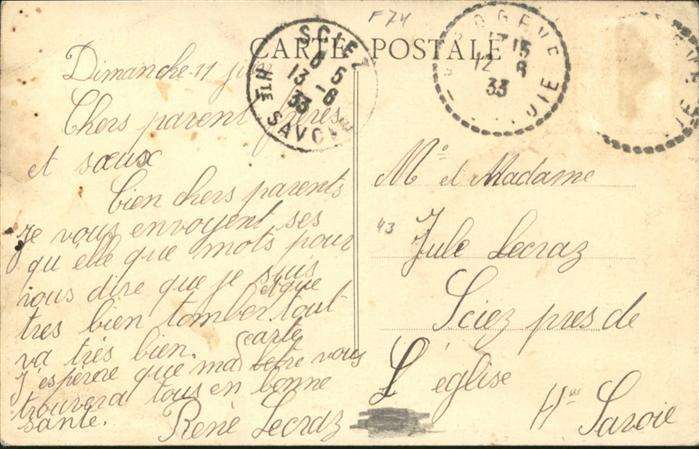 F74
CARTE POSTALE
SCIEZ
8 5
13 -6
33
HTE SAVOIE
1715
12 6
33
Dimanche 11 juin
Chers parent frères
et sœux
bien chers parents
Je vous envoyent ses
qu elle que mots pour
vous dire que je suis
très bien tomber et que tout
va très bien.
J'esperere que ma carte vous
trouvera tous en bonne
santé.
René Lecraz
Mr et Madame
43 Jule Lecraz
Sciez pres de
L'église
Hte Savoie